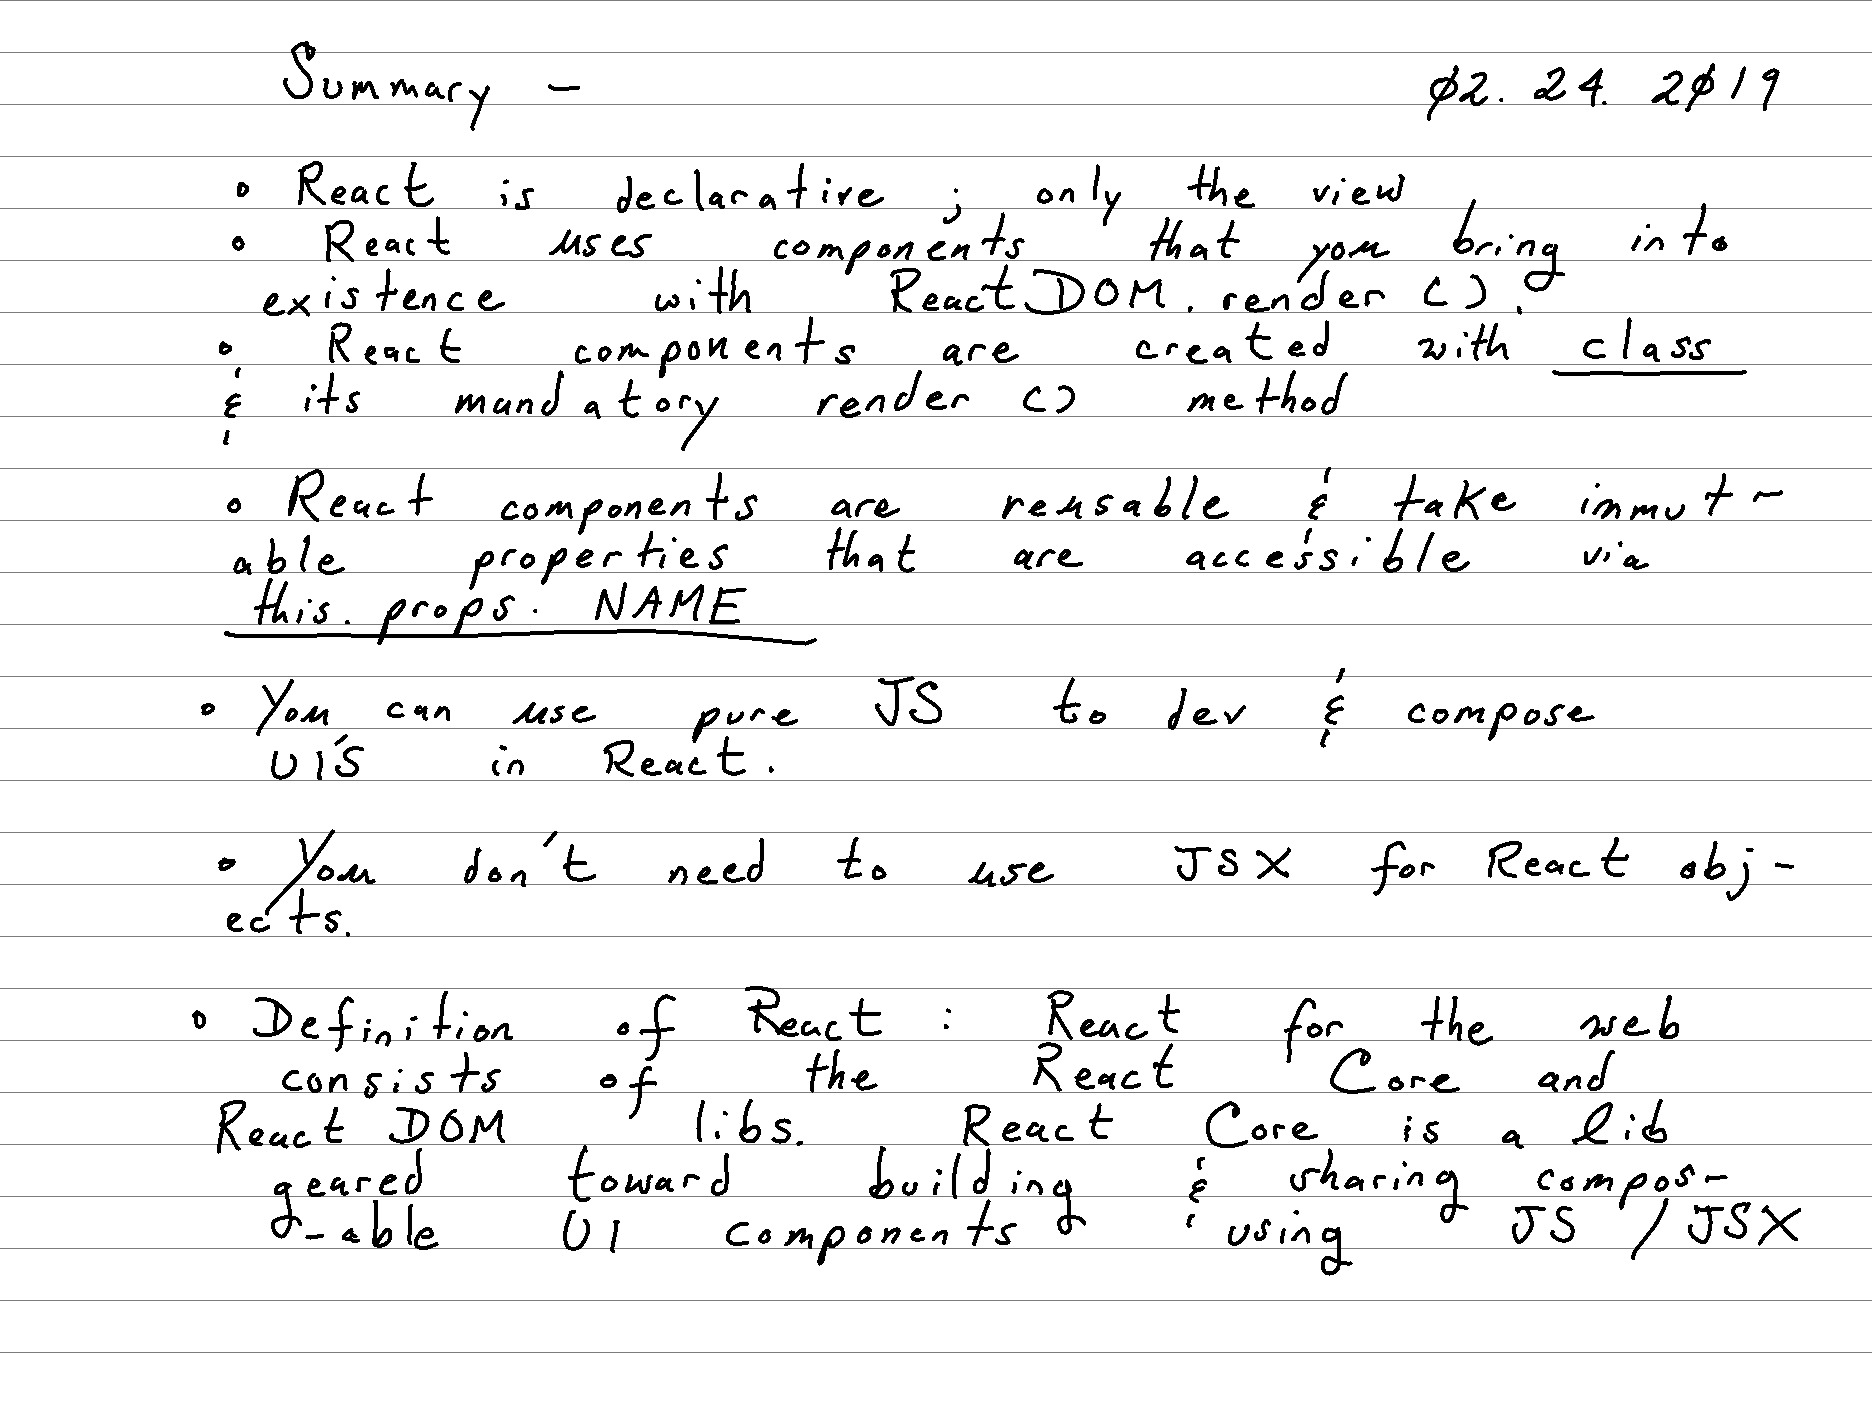 Summary – 02. 24. 2019
• React is declarative ; only the view
• React uses components that you bring into
existence with ReactDOM. render ().
• React components are created with class
& its mandatory render () method
• React components are reusable & take immut-
able properties that are accessible via
this. props. NAME
• You can use pure JS to dev & compose
UI'S in React.
• You don't need to use JSX for React obj-
ects.
• Definition of React : React for the web
consists of the React Core and
React DOM libs. React Core is a lib
geared toward building & sharing compos-
-able UI components using JS / JSX